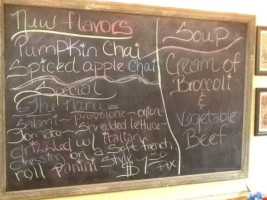 New flavors
Pumpkin Chai
Spiced apple chai
Special
The Nana =
Salami - provolone - onion-
Tomato - Shredded lettuce -
Drizzled w/ Italian
dressing on a Soft french
roll Panini Style
$7 + tx
Soup
Cream of
Broccoli
&
Vegetable
Beef